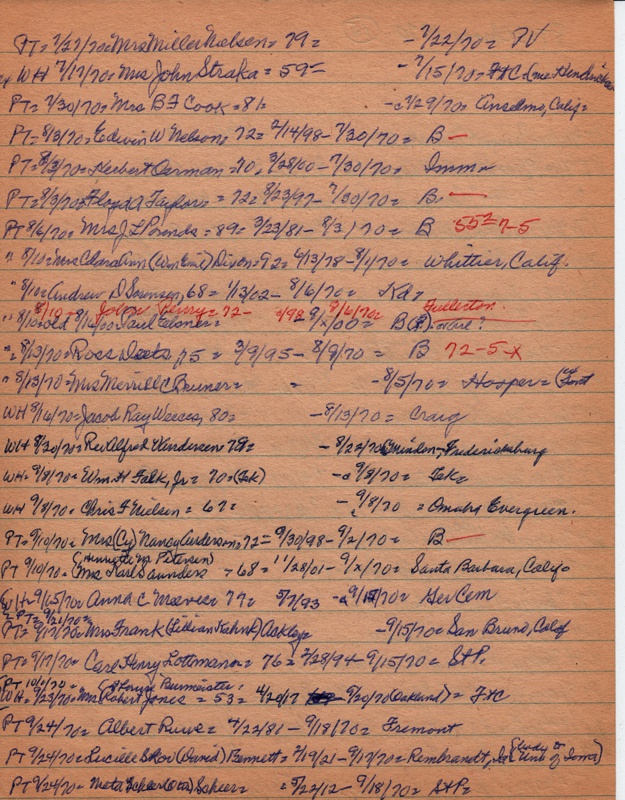 PT= 7/27/70= Mrs Miller Nelsen= 79= -7/22/70= PV
WH 7/17/70= Mrs John Straka = 59= -7/15/70= F+C
PT= 7/30/70= Mrs B F Cook = 81= -a 7/29/70= Anselmo, Calif=
PT= 8/3/70= Edwin W Nelson= 72= 2/14/98- 7/30/70= B —
PT= 8/3/70= Herbert = 70, 3/28/00- 7/30/70= Imm=
PT= 8/3/70= Floyd A Taylor= = 72= 8/23/97- 7/30/70= B. —
PT 8/6/70= Mrs J L = 89= 3/23/81- 8/3/70= B 55=7-5
" 8/10= Mrs Clara Ann Dixon= 92= 6/13/78- 8/1/70= Whittier, Calif.
" 8/10= Andrew D Sorensen, 68= 1/13/02- 8/6/70= Ka=
8/10= John Henry= 72- 8/6/70= Fullerton
" 8/10= Paul =
" 8/13/70= Ross Deets, 75 3/9/95- 8/9/70= B 72-5-x
" 8/13/70= Mrs Merrill C Bruner= = -8/5/70= Hooper=
WH 8/16/70= Jacob Ray 80= -8/13/70= Craig
WH 8/30/70= Rev Alfred Hendersen 79= -8/22/70 Minden, Fredericksburg
WH= 9/8/70= Wm H Falk, Jr= 70=(Tek) -a 9/8/70= Tek=
WH 9/8/70= Chris F Nielson = 67= -a 9/8/70 = Omaha Evergreen.
PT= 9/10/70= Mrs (Cy) Nancy Anderson= 72= 9/30/98- 9/2/70= B —
(Henrietta M Petersen)
PT 9/10/70= Mrs Karl Saunders -68= 11/28/01- 9/x/70= Santa Barbara, Calif=
WH= 9/15/70= Anna C 79= 5/7/93 Ger Cem
PT= 9/21/70=
PT= 9/17/70= Mrs Frank (Lillian Kahnk) Oakley= -9/15/70= San Bruno, Calif
PT= 9/17/70= Carl Henry Lottman= = 76= 2/28/94- 9/15/70= St P.
PT 10/1/70 =
WH= 9/23/70= Mrs Robert Jones = 53= 4/20/17 - 9/20/70 (Oakland) = F+C
PT 9/24/70= Albert Ruwe= 4/22/81- 9/18/70= Fremont
PT 9/24/70= Lucille (David) Bennett= 2/19/21- 9/17/70= Rembrandt, Ia
PT 9/24/70= Meta Scheer= = 5/22/12- 9/18/70= St P=